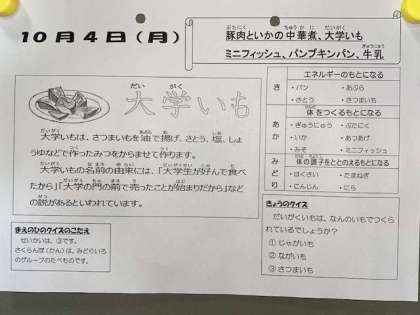 10月4日（月）
豚肉といかの中華煮、大学いも
ミニフィッシュ、パンプキンパン、牛乳
大学いも
大学いもは、さつまいもを油で揚げ、さとう、塩、しょ
うゆなどで作ったみつをからませて作ります。
大学いもの名前の由来には、「大学生が好んで食べ
たから」「大学の門の前で売ったことが始まりだから」など
の説があるといわれています。
まえのひのクイズのこたえ
せいかいは、③です。
さくらんぼ（かん）は、みどりいろ
のグループのたべものです。
エネルギーのもとになる
き
・パン ・あぶら
・さとう ・さつまいも
体をつくるもとになる
あか
・ぎゅうにゅう ・ぶたにく
・いか ・あつあげ
・みそ ・ミニフィッシュ
体の調子をととのえるもとになる
みどり
・はくさい ・たまねぎ
・にんじん ・にら
きょうのクイズ
だいがくいもは、なんのいもでつくら
れているでしょうか？
① じゃがいも
② ながいも
③ さつまいも